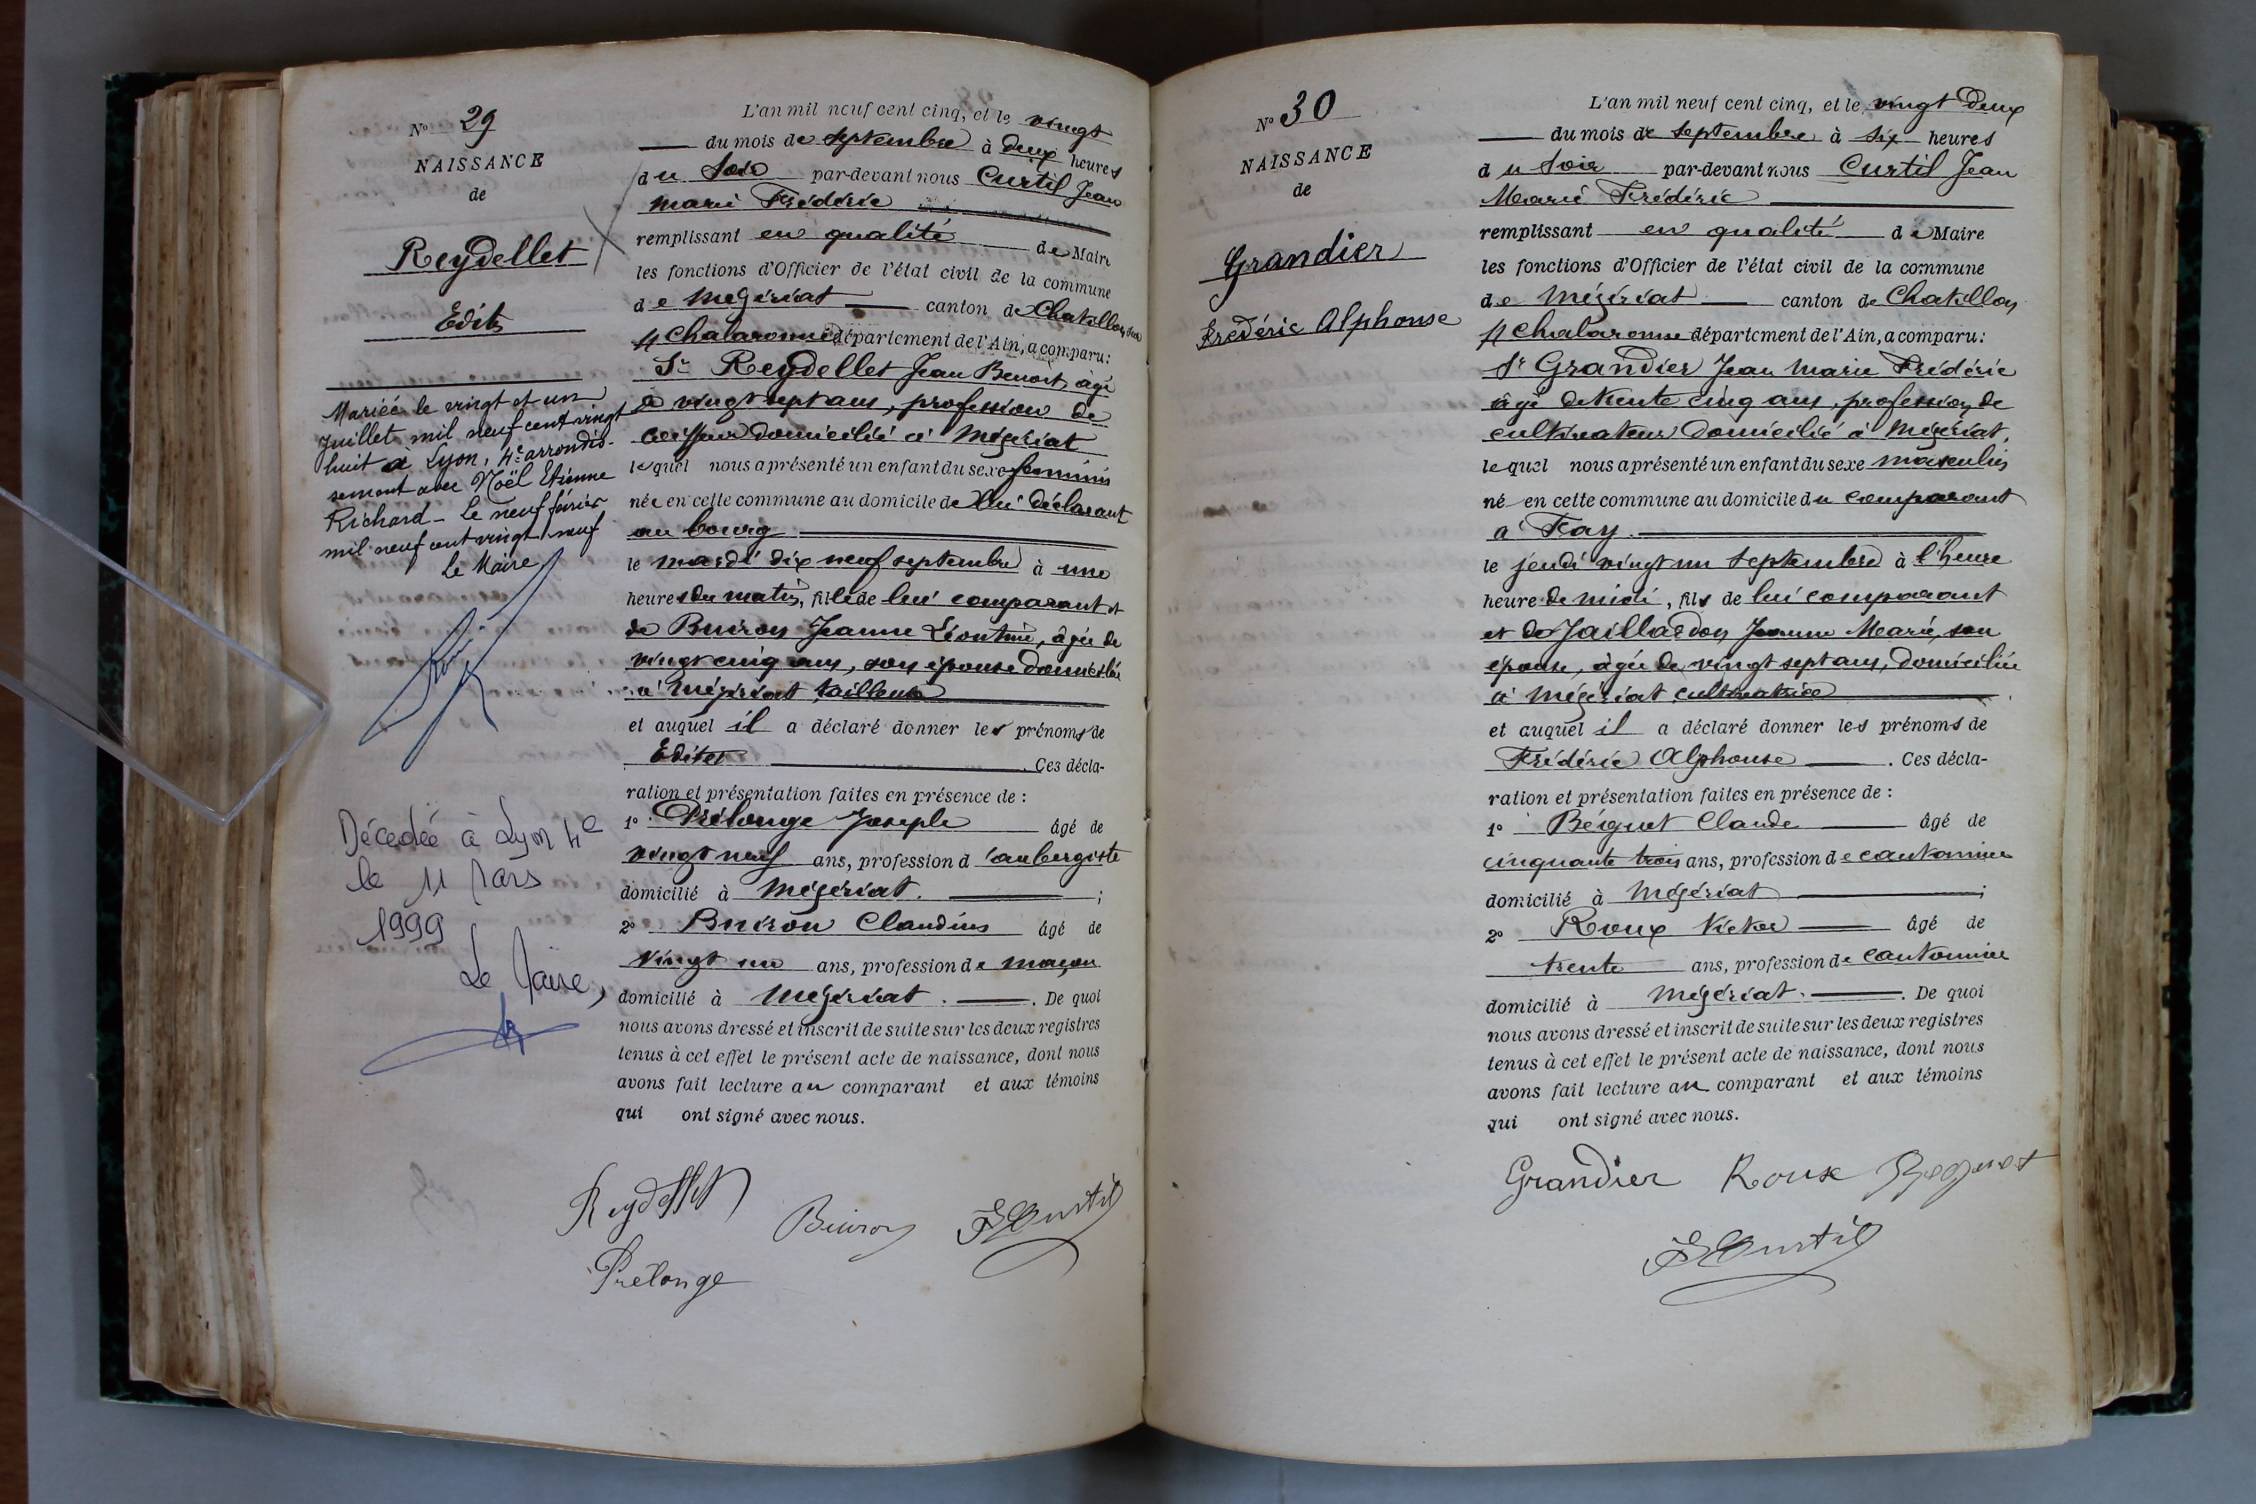 N° 29
NAISSANCE
de
Reydellet
Edith
Mariée le vingt et un
Juillet mil neuf cent vingt
huit à Lyon, 4e arrondis-
sement avec Noël Etienne
Richard - Le neuf février
mil neuf cent vingt neuf
Le Maire,
Décédée à Lyon 4e
le 11 Mars
1999
Le Maire,
L'an mil neuf cent cinq, et le vingt
du mois de septembre à deux heures
du soir par-devant nous Curtil Jean
Marie Frédéric
remplissant en qualité de Maire
les fonctions d'Officier de l'état civil de la commune
de Mézériat canton de Chatillon sur
Chalaronne département de l'Ain, a comparu:
Sr Reydellet Jean Benoit, âgé
de vingt sept ans, profession de
coiffeur domicilié à Mézériat
lequel nous a présenté un enfant du sexe féminin
née en cette commune au domicile de lui déclarant
au bourg
le mardi dix neuf septembre à une
heures du matin, fille de lui comparant et
de Buiron Jeanne Léontine, âgée de
vingt cinq ans, son épouse domiciliée
à Mézériat, tailleuse
et auquel il a déclaré donner les prénoms de
Edith Ces décla-
ration et présentation faites en présence de :
1° Prélonge Joseph âgé de
vingt neuf ans, profession d'aubergiste
domicilié à Mézériat. ;
2° Buiron Claudius âgé de
vingt un ans, profession de maçon
domicilié à Mézériat. . De quoi
nous avons dressé et inscrit de suite sur les deux registres
tenus à cet effet le présent acte de naissance, dont nous
avons fait lecture au comparant et aux témoins
qui ont signé avec nous.
Reydellet Buiron F Curtil
Prélonge
N° 30
NAISSANCE
de
Grandier
Frédéric Alphonse
L'an mil neuf cent cinq, et le vingt deux
du mois de septembre à six heures
du soir par-devant nous Curtil Jean
Marie Frédéric
remplissant en qualité de Maire
les fonctions d'Officier de l'état civil de la commune
de Mézériat canton de Chatillon
s/ Chalaronne département de l'Ain, a comparu:
Sr Grandier Jean Marie Frédéric
âgé de trente cinq ans, profession de
cultivateur domicilié à Mézériat,
lequel nous a présenté un enfant du sexe masculin
né en cette commune au domicile du comparant
à Fay.
le jeudi vingt un septembre à l'heure
heure de midi, fils de lui comparant
et de Jaillardon Jeanne Marie, son
épouse, âgée de vingt sept ans, domiciliée
à Mézériat, cultivatrice
et auquel il a déclaré donner les prénoms de
Frédéric Alphonse . Ces décla-
ration et présentation faites en présence de :
1° Béguet Claude âgé de
cinquante trois ans, profession de cantonnier
domicilié à Mézériat ;
2° Roux Victor âgé de
trente ans, profession de cantonnier
domicilié à Mézériat. . De quoi
nous avons dressé et inscrit de suite sur les deux registres
tenus à cet effet le présent acte de naissance, dont nous
avons fait lecture au comparant et aux témoins
qui ont signé avec nous.
Grandier Roux Beguet
F Curtil